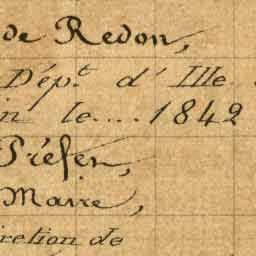 de Redon,
Dép.t d'Ille
in le.... 1842
Préfet,
Maire,
iretion de